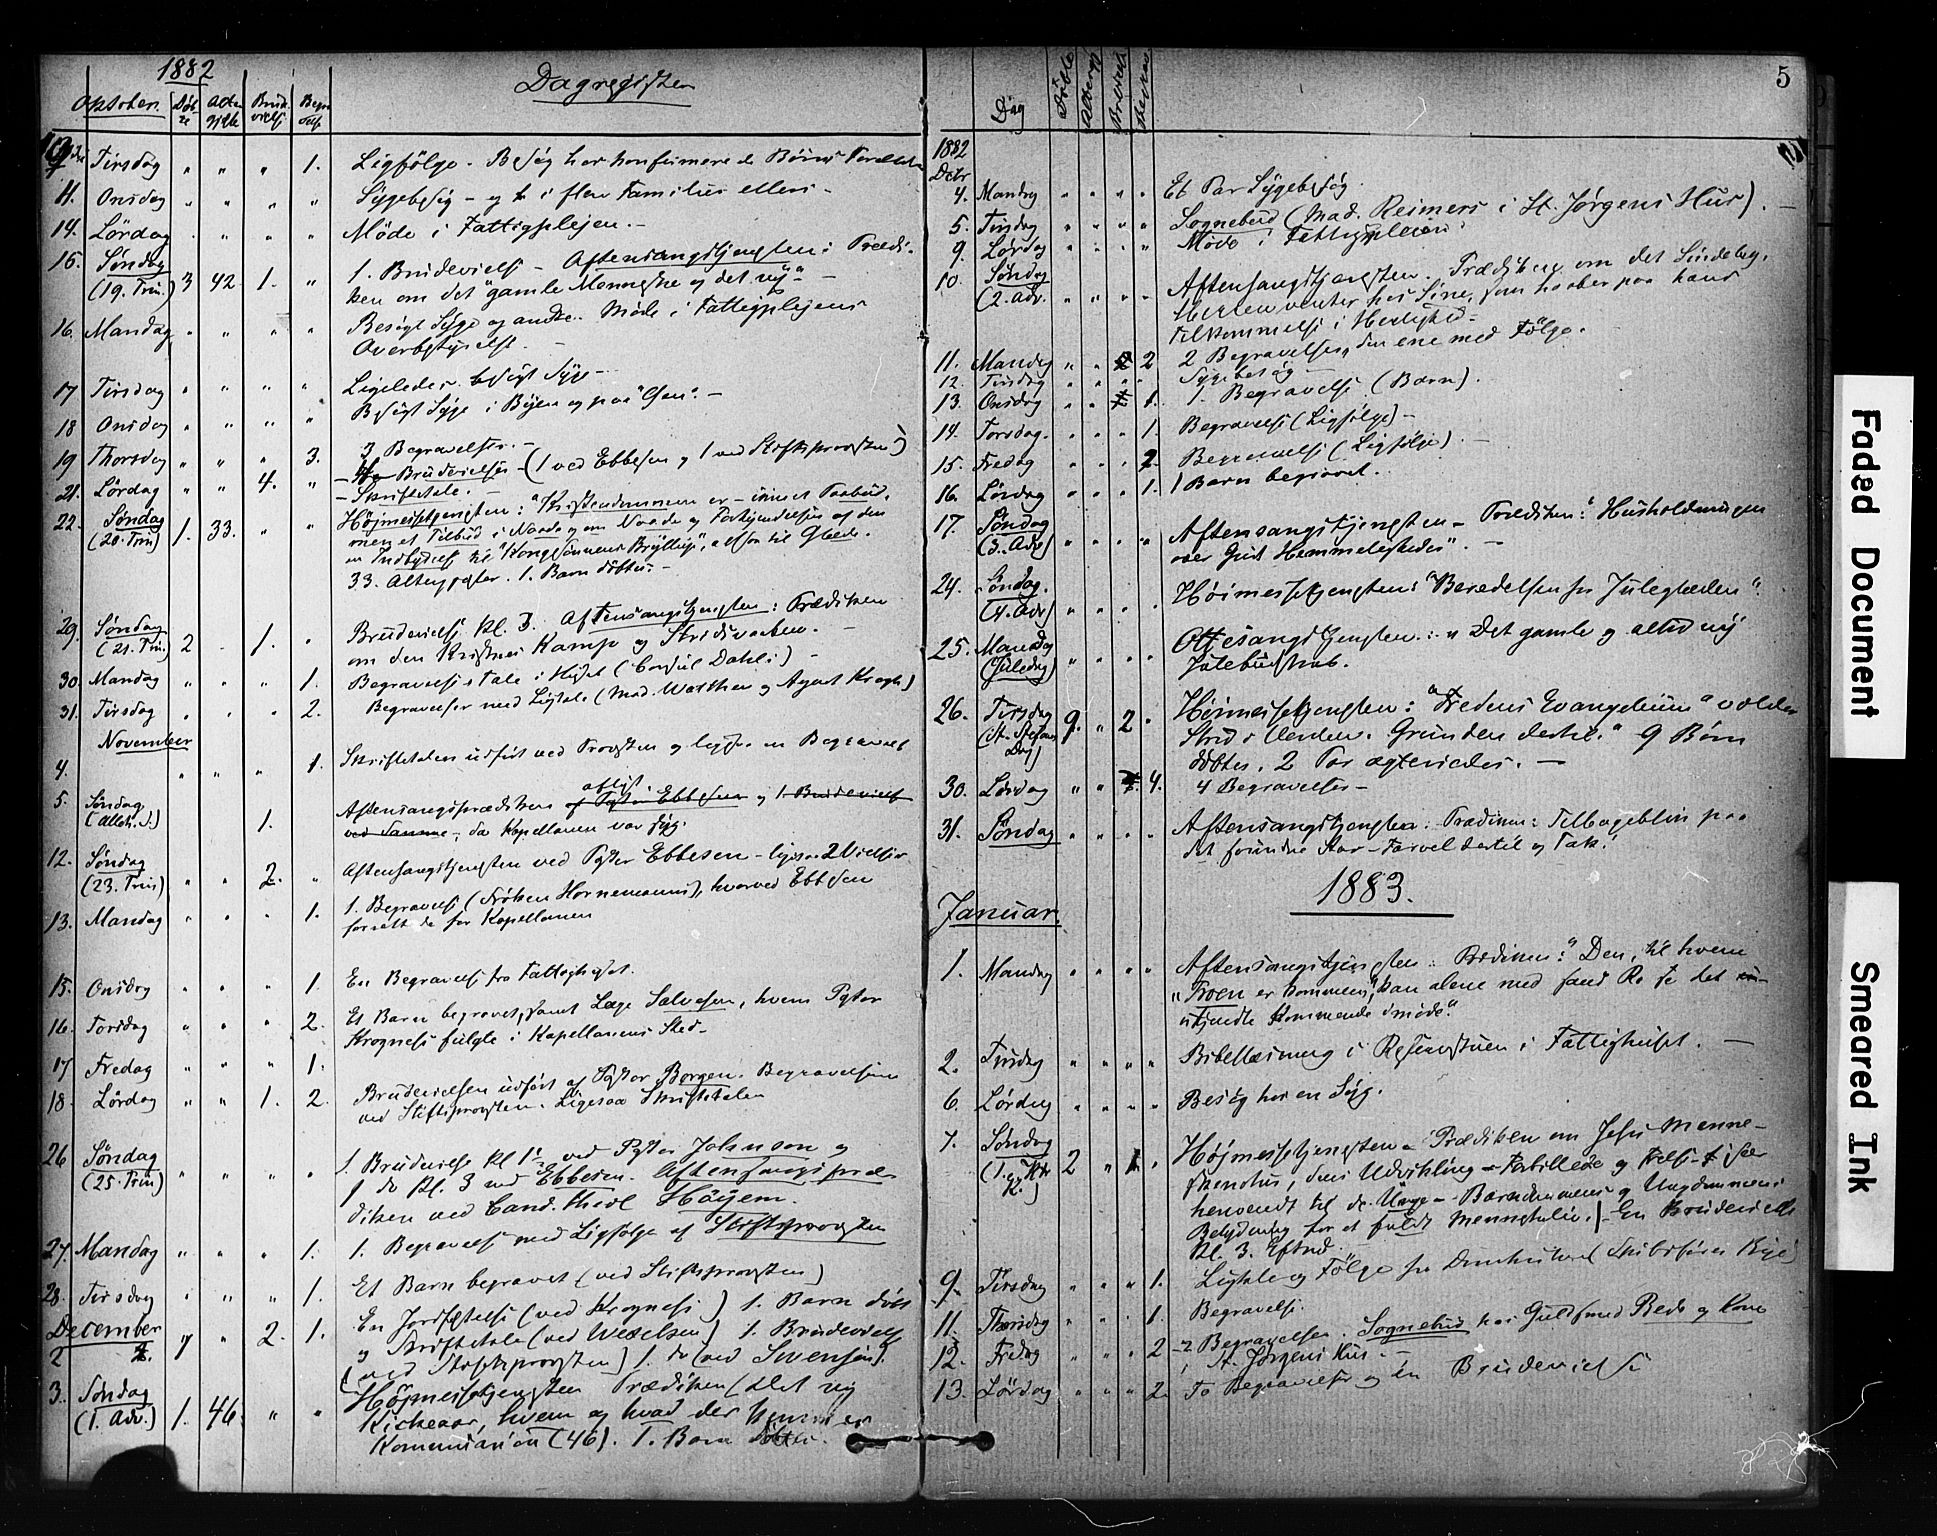 1882
Dagregister
Oktober. Døbte Brudvielse
Tirsdag " " " 1. Ligfölge. Besög hos konfirmerede Börns Foreldre
11. Onsdag " " " " Sygebesög - og i flere Familier ellers -
14. Lördag " " " " Möde i Fattigplejen. -
Söndag (19. Trin.) 3 42. 1. " 1. Brudevielse - Aftensangstjenesten: Prædi-
ken om det "gamle Menneske og det ny" -
16. Mandag " " " " Besögt Syge og andre. Möde i Fattigplejens
Overbestyrelse. -
17 Tirsdag " " " " Ligeledes besögt Syge -
18 Onsdag " " " " Besögt Syge i Byen og paa Öen. -
19 Thorsdag " " " 3. 3 Begravelser. -
21. Lördag " " 4. " Brudevielser - (1 ved Ebbesen og 1 ved Stiftsprovsten)
- Skriftetale. -
22. Söndag (20. Trin) 1. 33. " " Höjmessetjenesten: "Kristendommen er - intet Paabud,
men et Tilbud i Naade og om Naade og Forkyndelsen af den
en Indbydelse til "Kongesönnens Bryllup", altsaa til Glæde.
33. Altergjester. 1. Barn döbtes. -
29. Söndag (21. Trin.) 2 1. Brudevielse Kl. 3. Aftensangstjenesten: Prædiken
om den Kristnes Kamp og Stridsvaaben. -
30. Mandag " " " 1. Begravelse + Tale i Huset (Consul Dahls) -
31. Tirsdag " " " 2. Begravelser med Ligtale (Mad. Walther og Agent Krogh)
November
4. " " " 1. Skriftetalen udfört ved Provsten og ligesaa en Begravelse
5. Söndag (Alleh. S.) 1. Aftensangsprædiken aflyst af Pastor Ebbesen og 1. Brudevielse
ved Samme -, da Kapellanen var syg.
12. Söndag (23. Trin) " " 2. " Aftensangstjenesten ved Pastor Ebbesen - ligesaa 2 Vielser
13. Mandag " " " 1. 1. Begravelse (Fröken Hornemanns), hvorved Ebbesen
forrettede for Kapellanen
15. Onsdag " " " 1. En Begravelse fra Fattighuset.
16. Torsdag " " " 2. Et Barn begravet, samt Lage Salvesen, hvem Pastor
Krogness fulgte i Kapellanens Sted -
17 Fredag " " " 1.
18. Lördag " " 1. 2. Brudevielsen udfört af Pastor Borgen. Begravelsen
ved Stiftsprovsten. Ligesaa Skriftetalen
26 Söndag (25. Trin) " " " " 1. Brudevielse Kl 1 ved Pastor Johnson og
1 do Kl. 3 ved Ebbesen. Aftensangspræ-
diken ved Cand. theol Höyem.
27. Mandag " " " 1. 1. Begravelse med Ligfölge af Stiftsprovsten
28. Tirsdag " " " 1. Et Barn begravet (ved Stiftsprovsten)
December
2 " 2. 1. En Jordfæstelse (ved Krogness) 1. Barn döbt
og Skriftetale (ved Wexelsen) 1. Brudevielse
(ved Stiftsprovsten) 1. do (ved Svensen).
3. Söndag (1. Adv.) 1. 46. " " Höjmessetjenesten Prædiken (Det ny
Kirkeaar, hvem og hvad der kommer
Kommunion (46). 1. Barn döbtes.
5
Dag Døbte
1882
Decbr
4. Mandag " " " " Et Par Sygebesög.
5. Tirsdag " " " " Sognebud (Mad. Reimers i St. Jørgens Hus). -
9. Lördag " " " " Möde i Fattigplejen.
10. Söndag (2. Adv. " " " " Aftensangstjenesten. Prædiken om det Sindelag,
Herren venter hos Sine, som haaber paa hans
Tilkommelse i Herlighed -
11. Mandag " " 2 2 Begravelser, den ene med Fölge.
12. Tirsdag " " " " Sygebesög -
13. Onsdag " " 1. 1. Begravelse. (Barn).
14. Torsdag. " " " 1. Begravelse (Ligfölge) -
15. Fredag " " " Begravelse (Ligfölge). -
16. Lördag " " " 1. 1 Barn begravet.
17. Söndag (3. Adv) " " " " Aftensangstjenesten - Prædiken: "Husholdningen
over Guds Hemmeligheder". -
24. Söndag. (4. Adv) " " Höimessetjenesten: "Beredelsen for Juleglæden".
25. Mandag (Juledag) " " " " Ottesangstjenesten: "Det gamle og altid ny
Julebudskab.
26. Tirsdag (St. Stefans Dag) 9. " 2 " Höimessetjenesten: "Fredens Evangelium" volder
Strid i Verden. Grunden dertil." 9 Börn
döbtes. 2 Par ægteviedes. -
30. Lördag " " 4. 4 Begravelser -
31. Söndag " " " " Aftensangstjenesten: Prædiken: Tilbageblik paa
det forundne Aar - Farvel dertil og Tak!
1883.
Januar.
1. Mandag " " " " Aftensangstjenesten: Prædiken: "Den, til hvem
"Troen er kommen", kan alene med sand Ro se det
ukjendte Kommende imøde."
2. Tirsdag " " " " Bibellæsning i Fattighuset. -
6. Lördag " " " " Besög hos en Syg.
7. Söndag 2 " 1. " Höjmessetjenesten - Prædiken om Jesu Menne-
skenatur, dens Udvikling - Forbillede og Frelse - især
henvendt til de Unge - Barndommens og Ungdommens
Betydning for et fuldt Menneskeliv. - En Brudevielse
Kl. 3. Eftmd.
9. Tirsdag " " " 1. Ligtale og Fölge fra Domkirken (Skibsförer Bye)
11. Thorsdag " " " 1. Begravelse.
12. Fredag " " " 2 2 Begravelser. Sognebud hos Guldsmed Bede og Kone
i St. Jørgens Hus -
13. Lördag " " " 2. To Begravelser og én Brudevielse
Faded Document
Smeared Ink